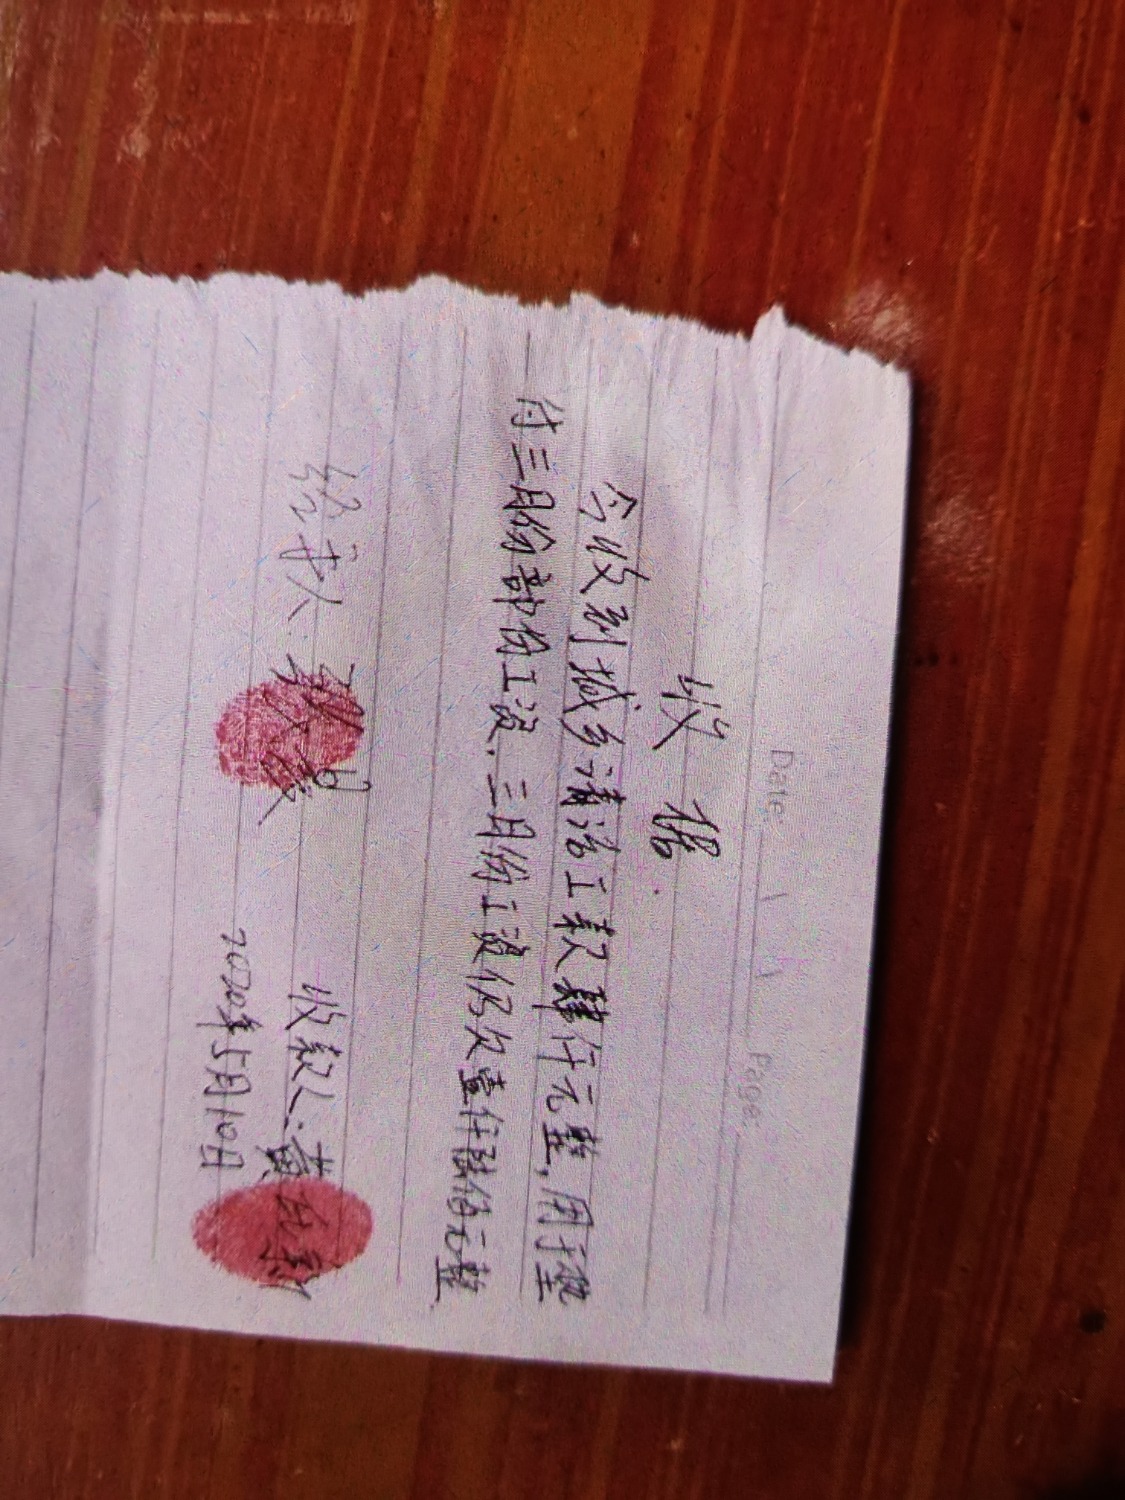 Date: Page:
收据
今收到城乡清洁工款肆仟元整,用于垫
付三月份部份工资.三月份工资仍欠壹仟陆佰元整
收款人:黄
2020年5月10日